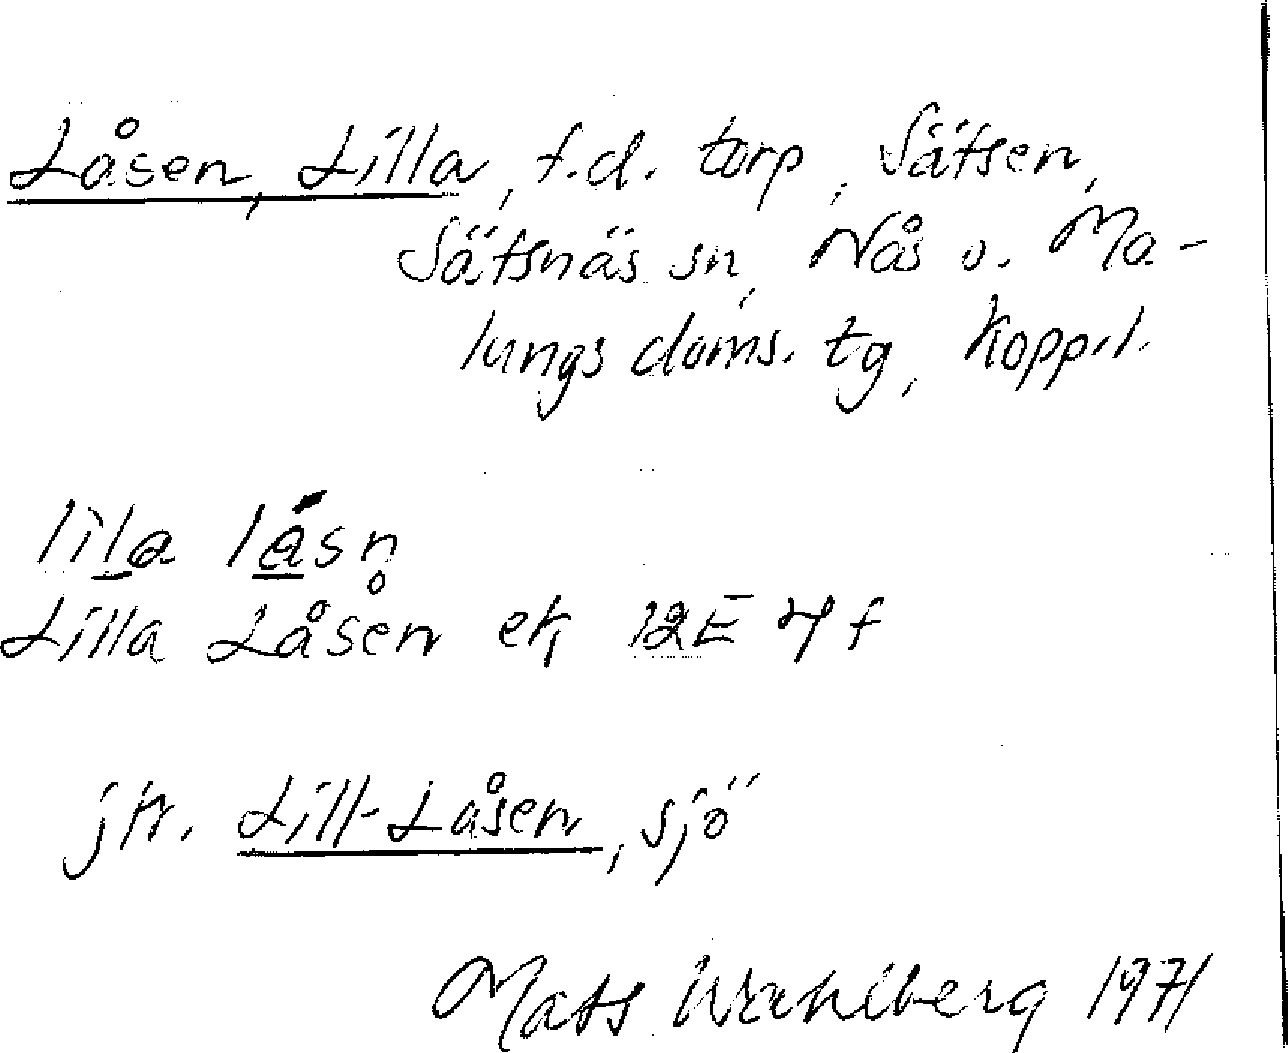 Låsen, Lilla, f.d. torp, Sätsen,
Sätsnäs sn, Nås o. Ma-
lungs doms. tg, Kopp.l.
lila låsn̥
Lilla Låsen ek, 12E 7f
jfr. Lill-Låsen, sjö
Mats Wahlberg 1971